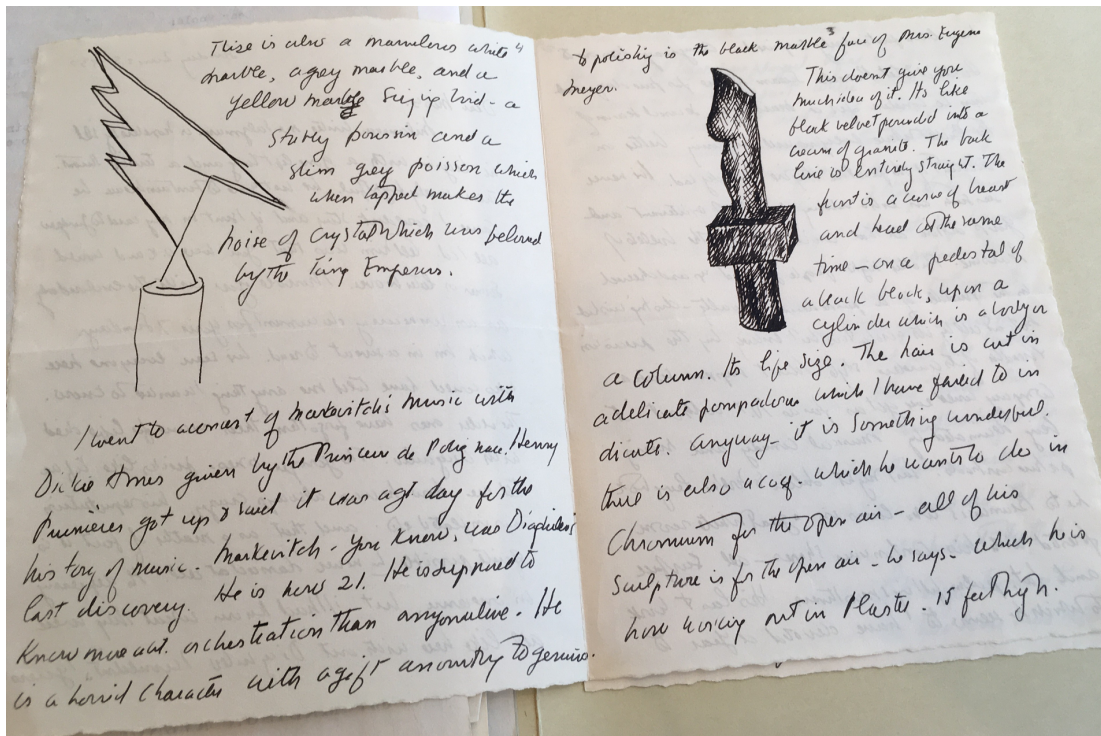 There is also a marvelous white 4
marble, a grey marble, and a
yellow marble Singing bird - a
sturdy poussin and a
slim grey poisson which
when tapped makes the
noise of crystal which was beloved
by the Tang Emperors.
I went to a concert of Markevitch's music with
Dickie Ames given by the Princess de Polignac. Henry
Prunieres got up & said it was a gt day for the
history of music. Markevitch - you know, was Diaghilev's
last discovery. He is now 21. He is supposed to
know more abt. orchestration than anyone alive. He
is a horrid character with a gift amounting to genius.
3
to polishing is the black marble face of Mrs. Eugene
Meyer.
This doesnt give you
much idea of it. Its like
black velvet pounded into a
cream of granite. The back
line is entirely straight. The
front is a curve of breast
and head at the same
time - on a pedestal of
a black block, upon a
cylinder which is a body or
a column. Its life size. The hair is cut in
a delicate pompadour which I have failed to in
dicate. anyway - it is Something wonderful.
there is also a coq. which he wants to do in
Chromium for the open air - all of his
sculpture is for the open air - he says - which he is
now working out in Plaster. 15 feet high.